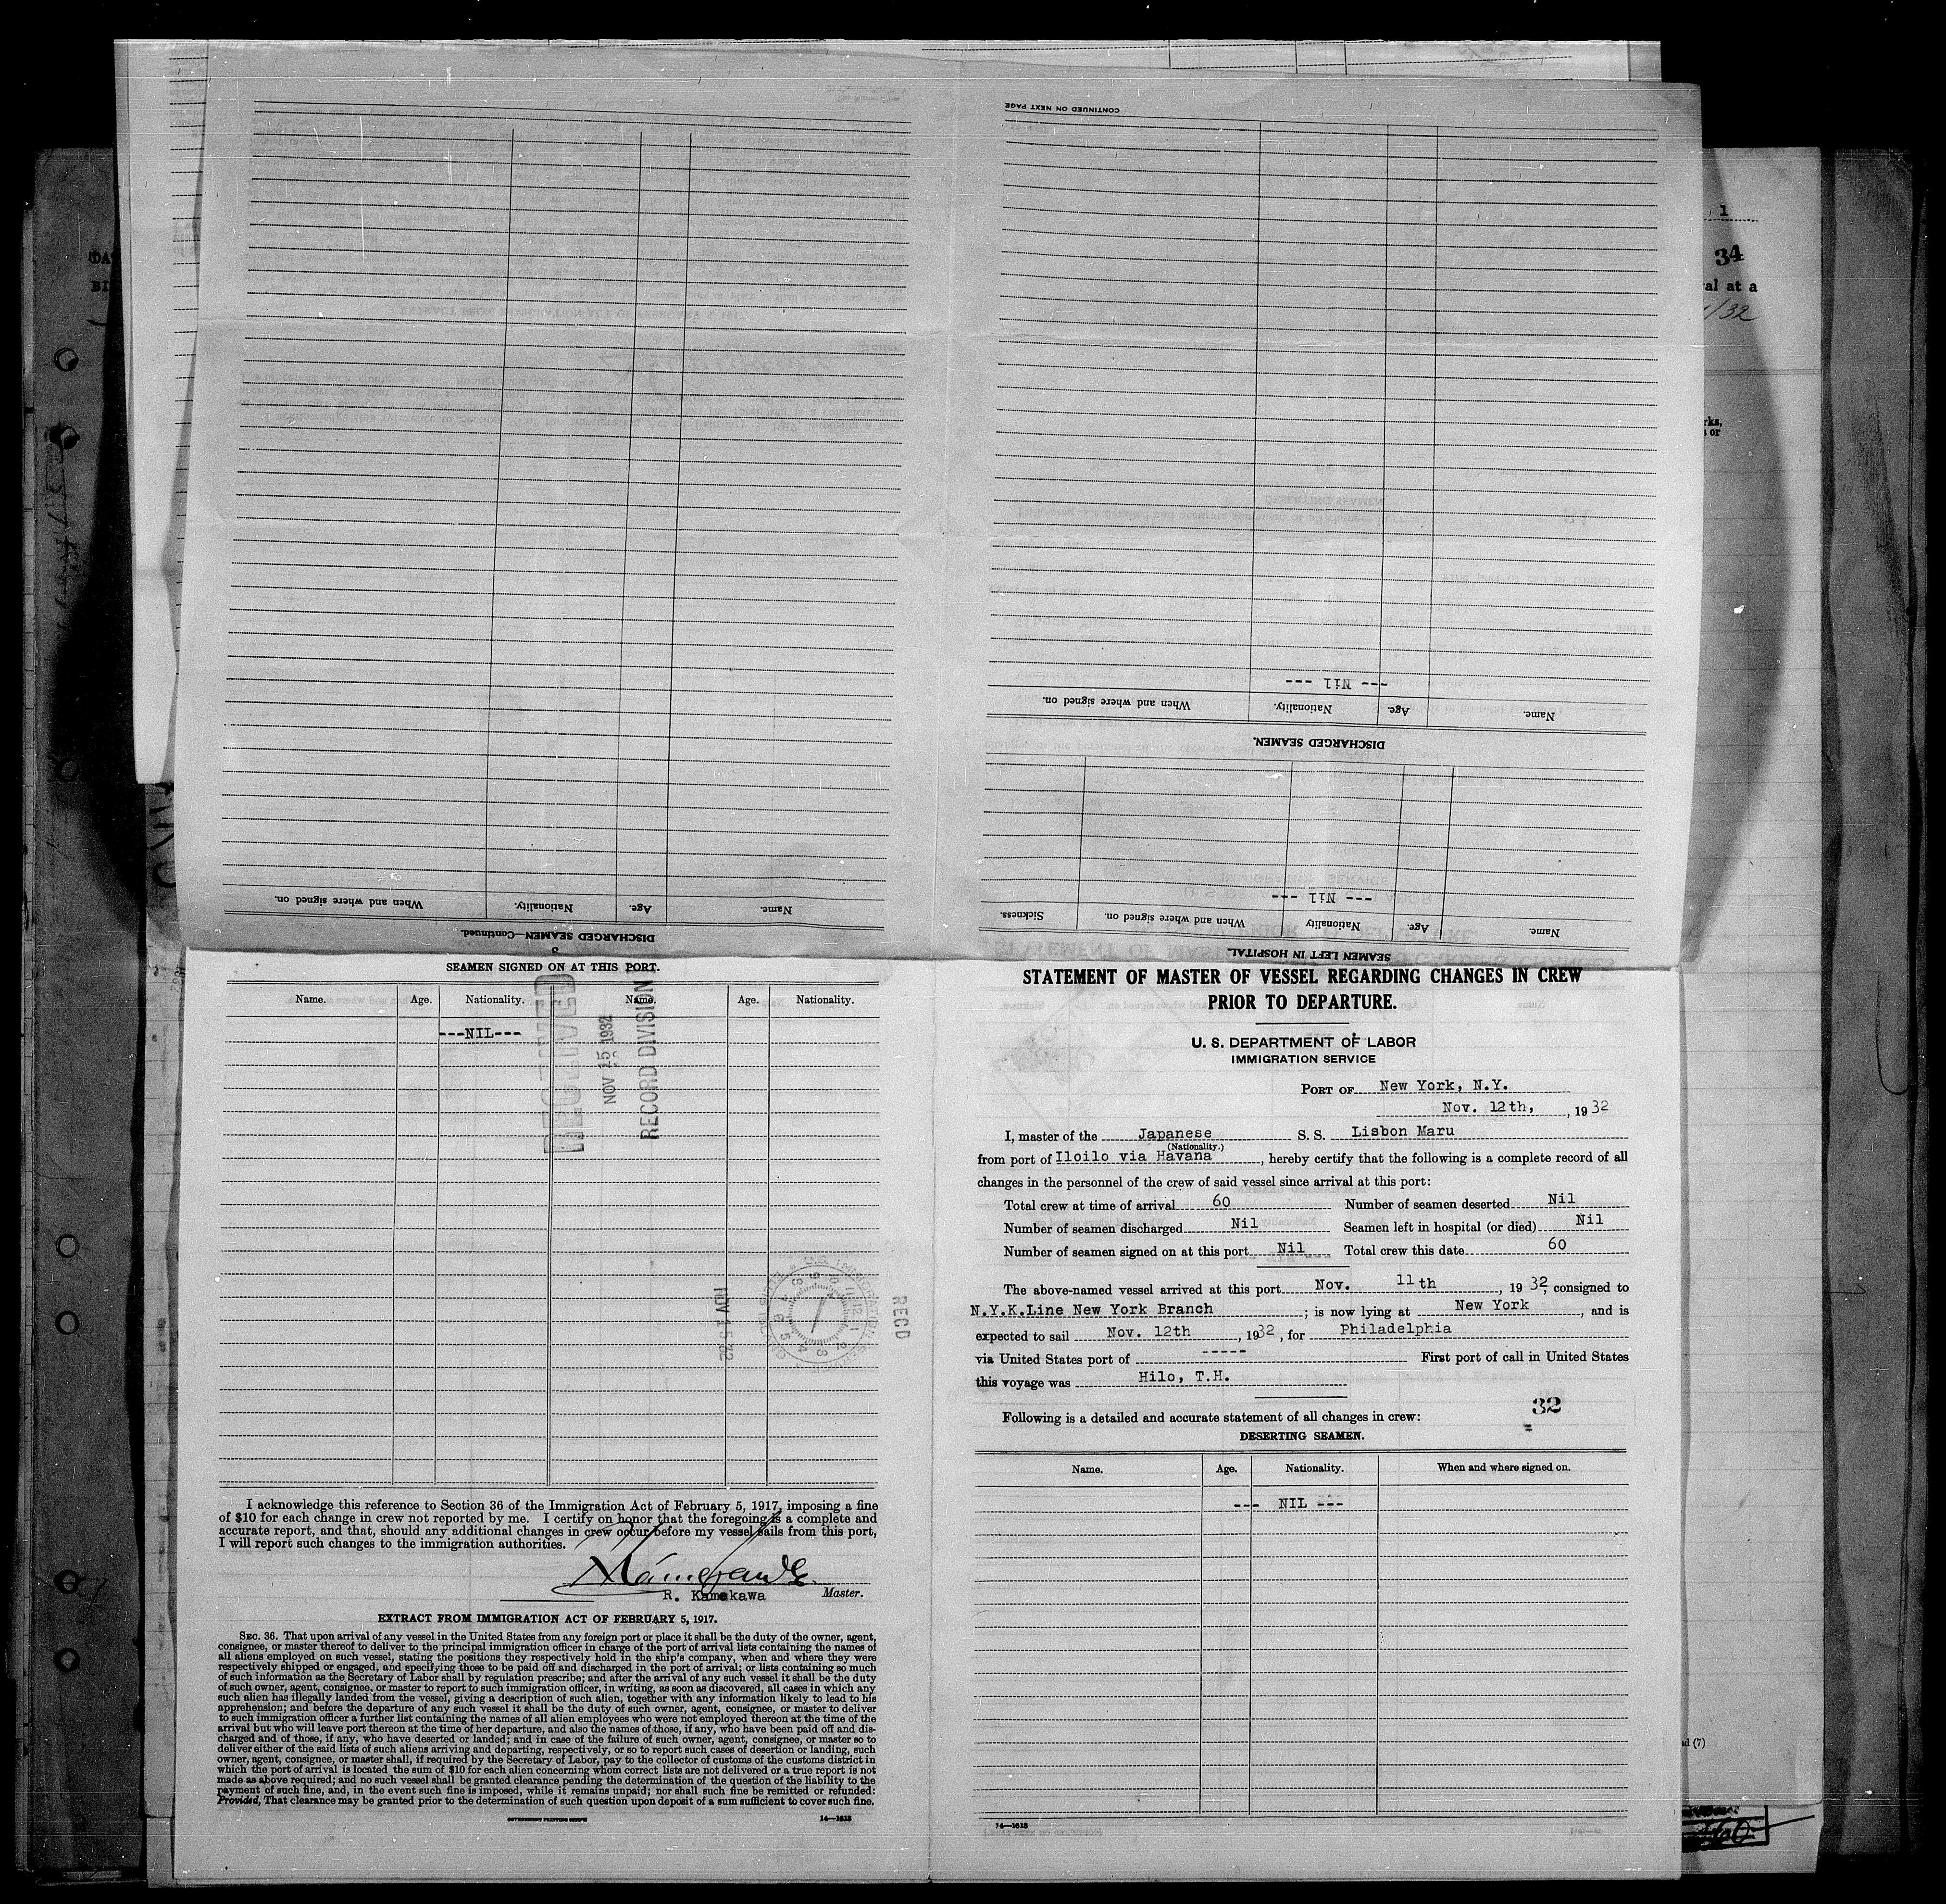 CONTINUED ON NEXT PAGE
--- Nil ---
Name. Age. Nationality. When and where signed on.
DISCHARGED SEAMEN.
--- Nil ---
Name. Age. Nationality. When and where signed on. Sickness.
SEAMEN LEFT IN HOSPITAL
Name. Age. Nationality. When and where signed on.
DISCHARGED SEAMEN—Continued.
3
1
34
al at a
/32
rks,
s or
SEAMEN SIGNED ON AT THIS PORT.
Name. Age. Nationality. Name. Age. Nationality.
---NIL---
RECEIVED
NOV 15 1932
RECORD DIVISION
NOV 15 32
REC'D
I acknowledge this reference to Section 36 of the Immigration Act of February 5, 1917, imposing a fine
of $10 for each change in crew not reported by me. I certify on honor that the foregoing is a complete and
accurate report, and that, should any additional changes in crew occur before my vessel sails from this port,
I will report such changes to the immigration authorities.
R. Kamekawa Master.
EXTRACT FROM IMMIGRATION ACT OF FEBRUARY 5, 1917.
SEC. 36. That upon arrival of any vessel in the United States from any foreign port or place it shall be the duty of the owner, agent,
consignee, or master thereof to deliver to the principal immigration officer in charge of the port of arrival lists containing the names of
all aliens employed on such vessel, stating the positions they respectively hold in the ship's company, when and where they were
respectively shipped or engaged, and specifying those to be paid off and discharged in the port of arrival; or lists containing so much
of such information as the Secretary of Labor shall by regulation prescribe; and after the arrival of any such vessel it shall be the duty
of such owner, agent, consignee, or master to report to such immigration officer, in writing, as soon as discovered, all cases in which any
such alien has illegally landed from the vessel, giving a description of such alien, together with any information likely to lead to his
apprehension; and before the departure of any such vessel it shall be the duty of such owner, agent, consignee, or master to deliver
to such immigration officer a further list containing the names of all alien employees who were not employed thereon at the time of the
arrival but who will leave port thereon at the time of her departure, and also the names of those, if any, who have been paid off and dis-
charged and of those, if any, who have deserted or landed; and in case of the failure of such owner, agent, consignee, or master so to
deliver either of the said lists of such aliens arriving and departing, respectively, or so to report such cases of desertion or landing, such
owner, agent, consignee, or master shall, if required by the Secretary of Labor, pay to the collector of customs of the customs district in
which the port of arrival is located the sum of $10 for each alien concerning whom correct lists are not delivered or a true report is not
made as above required; and no such vessel shall be granted clearance pending the determination of the question of the liability to the
payment of such fine, and, in the event such fine is imposed, while it remains unpaid; nor shall such fine be remitted or refunded:
Provided, That clearance may be granted prior to the determination of such question upon deposit of a sum sufficient to cover such fine.
GOVERNMENT PRINTING OFFICE 14—1613
STATEMENT OF MASTER OF VESSEL REGARDING CHANGES IN CREW
PRIOR TO DEPARTURE.
U. S. DEPARTMENT OF LABOR
IMMIGRATION SERVICE
PORT OF New York, N.Y.
Nov. 12th, , 1932
I, master of the Japanese S. S. Lisbon Maru
(Nationality.)
from port of Iloilo via Havana , hereby certify that the following is a complete record of all
changes in the personnel of the crew of said vessel since arrival at this port:
Total crew at time of arrival 60 Number of seamen deserted Nil
Number of seamen discharged Nil Seamen left in hospital (or died) Nil
Number of seamen signed on at this port Nil Total crew this date 60
The above-named vessel arrived at this port Nov. 11th , 1932, consigned to
N.Y.K.Line New York Branch ; is now lying at New York , and is
expected to sail Nov. 12th , 1932, for Philadelphia
via United States port of ----- First port of call in United States
this voyage was Hilo, T.H.
32
Following is a detailed and accurate statement of all changes in crew:
DESERTING SEAMEN.
Name. Age. Nationality. When and where signed on.
--- NIL ---
14—1613
d (7)